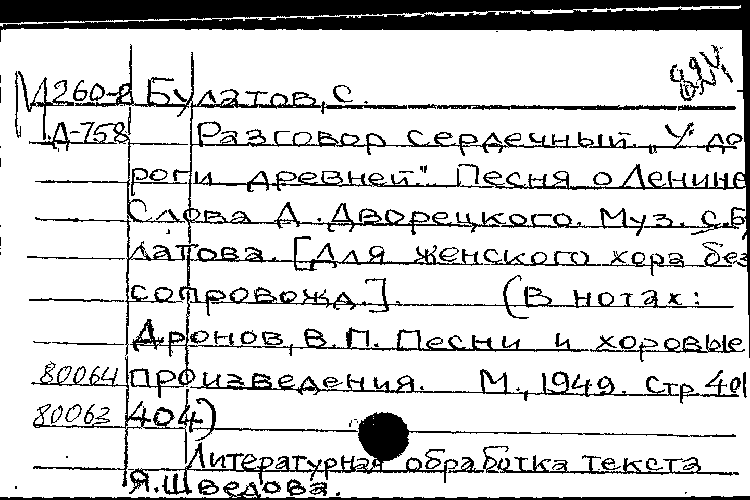 824
М260-2 Булатов, С.
Д-758 Разговор сердечный. „У до
роги древней". Песня о Ленине
Слова Д. Дворецкого. Муз. С. Б
латова. [Для женского хора без
сопровожд.]. (В нотах:
Дронов, В. П. Песни и хоровые
80064 произведения. М., 1949. Стр. 401
80063 404)
Литературная обработка текста
Я. Шведова.